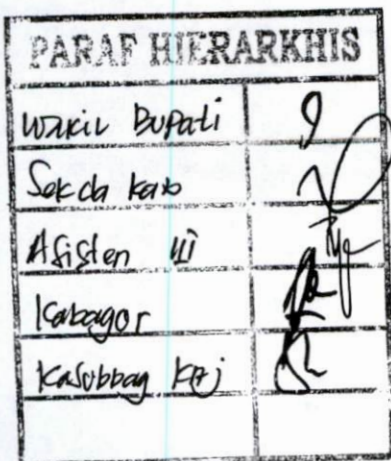 PARAF HIERARKHIS
Wakil Bupati
Sekda Kab
Asisten III
Kabagor
Kasubbag